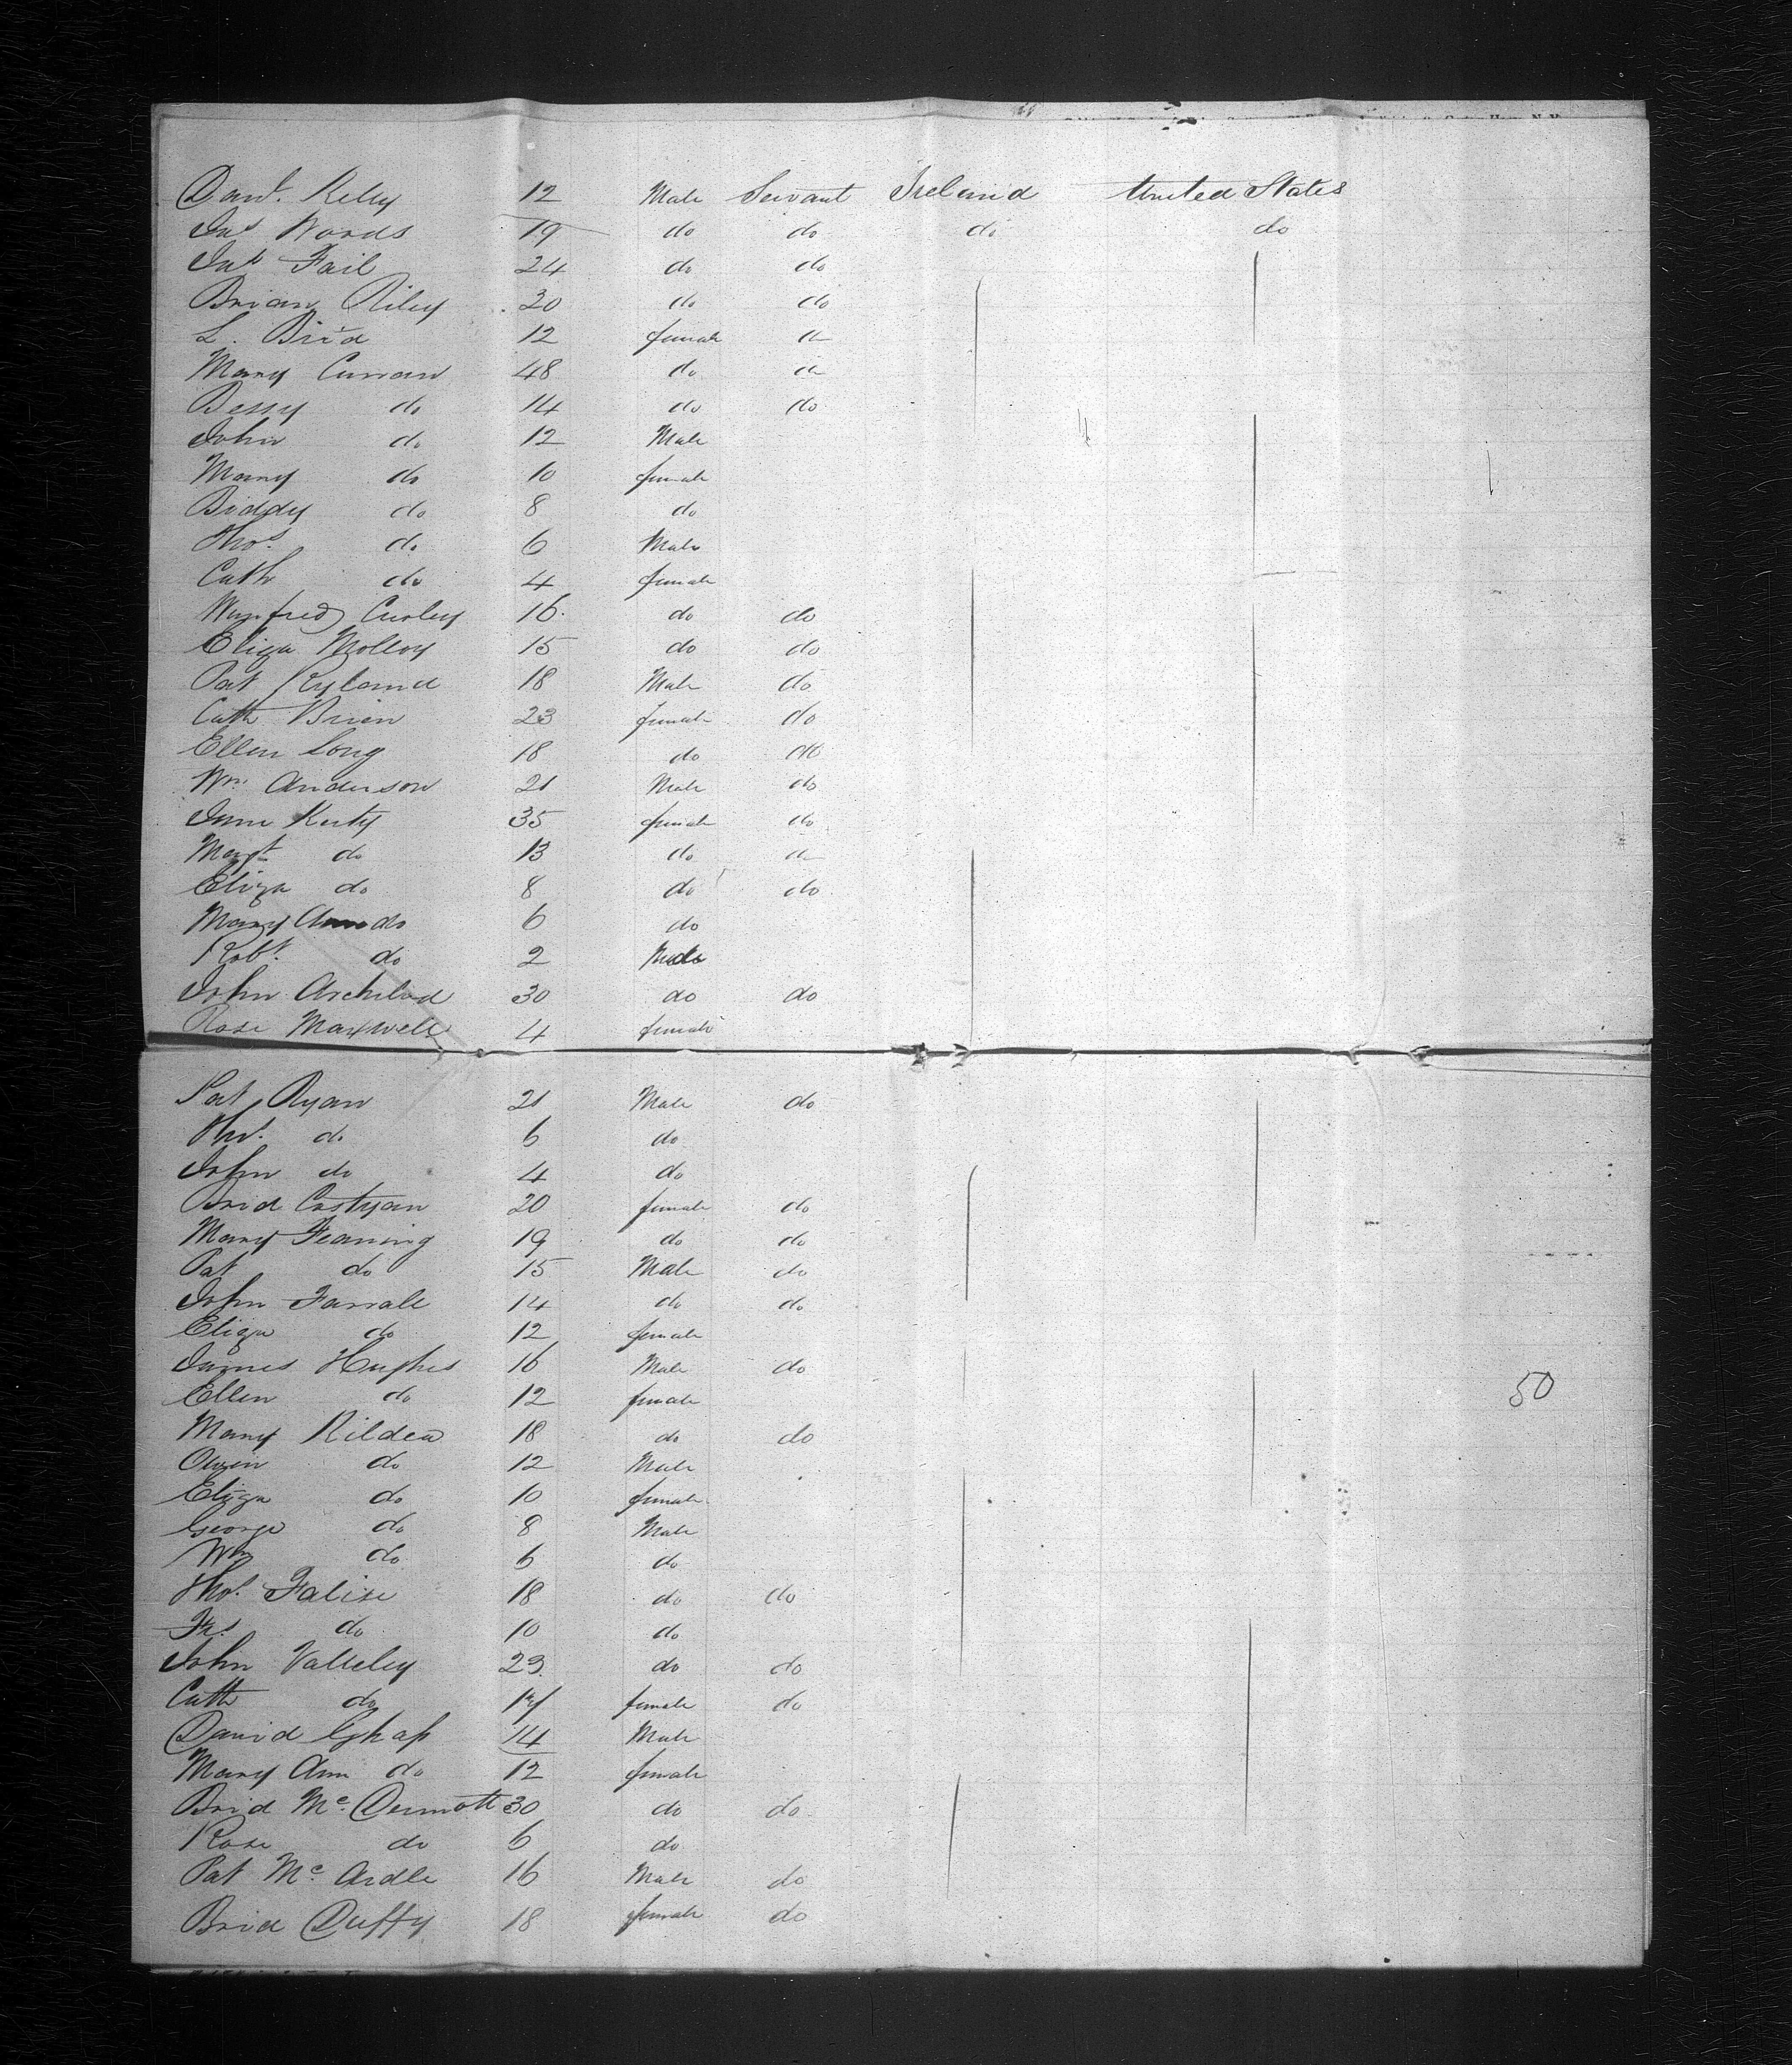 Danl. Kelly 12 Male Servant Ireland United States
Jas Woods 19 do do do do
Jas Fail 24 do do
Brian Riley 30 do do
L. Bird 12 female do
Mary Curran 48 do do
Bessy do 14 do do
John do 12 Male
Mary do 10 female
Biddy do 8 do
Thos. do 6 Male
Cath do 4 female
Winfred Curley 16 do do
Eliza Molloy 15 do do
Pat Ryland 18 Male do
Cath Brien 23 female do
Ellen Long 18 do do
Wm. Anderson 21 Male do
Jane Kerty 35 female do
Margt do 13 do do
Eliza do 8 do do
Mary Ann do 6 do
Robt. do 2 Male
John Archibod 30 do do
Rose Maxwell 4 female
Pat Ryan 21 Male do
Thos. do 6 do
John do 4 do
Brid Costyan 20 female do
Mary Fleaning 19 do do
Pat do 15 Male do
John Farrall 14 do do
Eliza do 12 female
James Hughes 16 Male do
Ellen do 12 female 50
Mary Kildea 18 do do
Owen do 12 Male
Eliza do 10 female
George do 8 Male
Wm do 6 do
Thos. Falise 18 do do
Frs. do 10 do
John Valleley 23 do do
Cath do 17 female do
David 14 Male
Mary Ann do 12 female
Brid Mc. Dermott 30 do do
Rose do 6 do
Pat Mc Ardle 16 Male do
Brid Duffy 18 female do